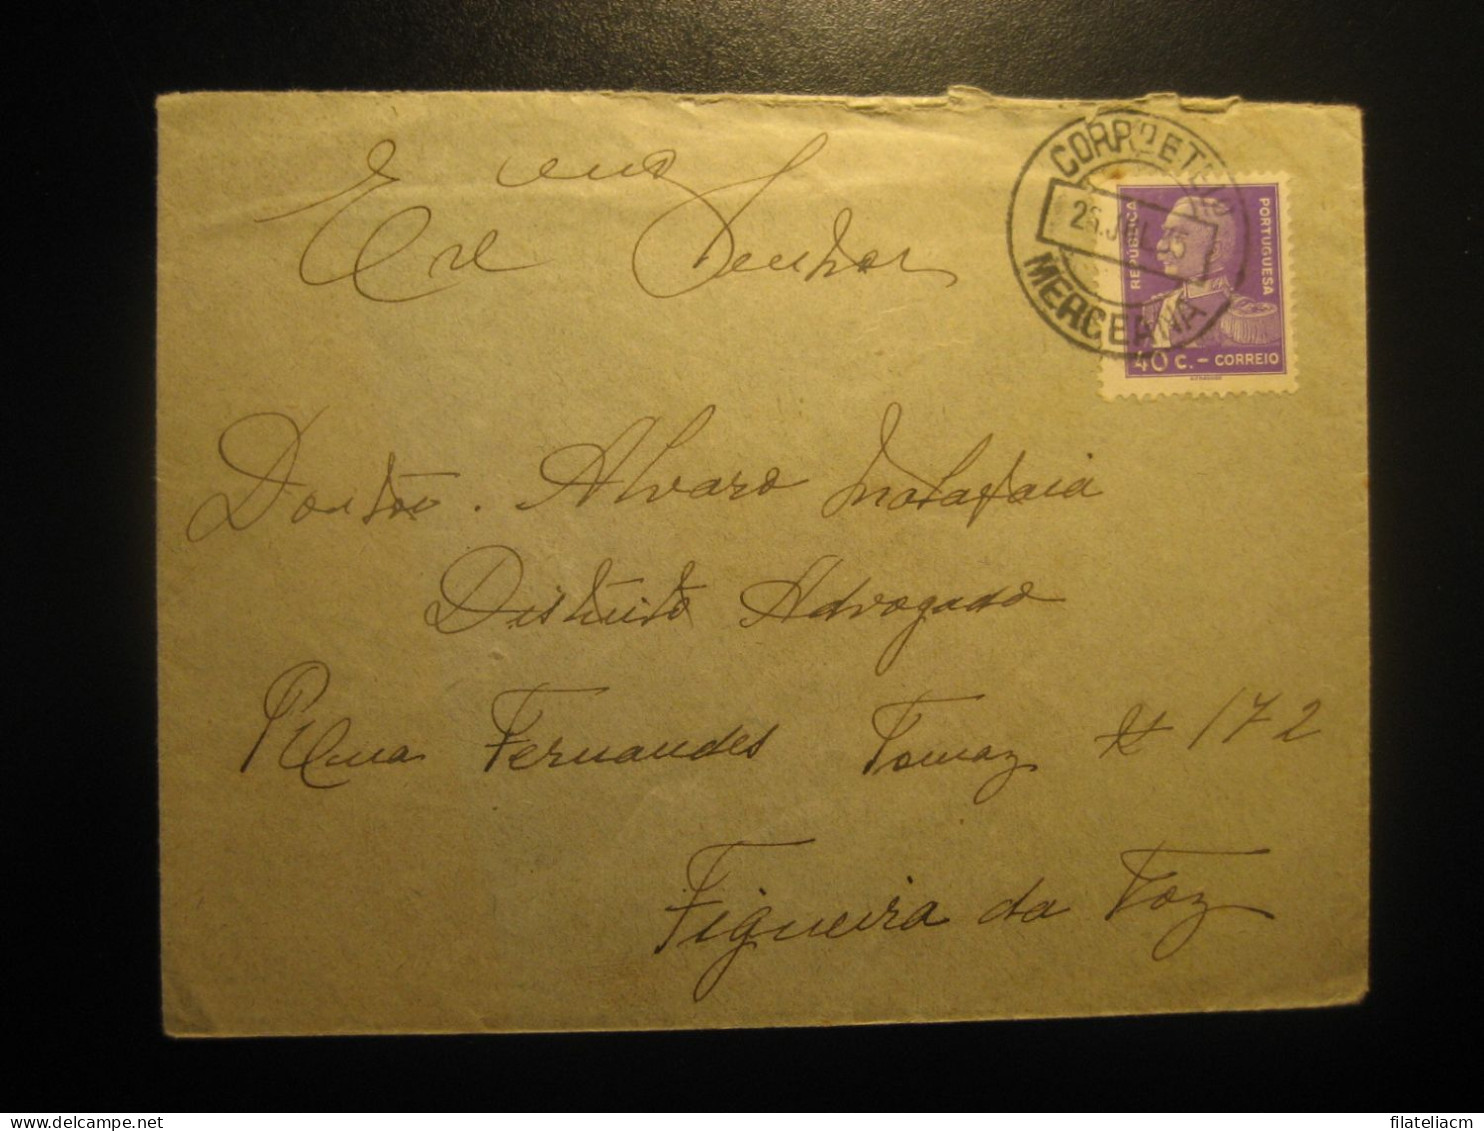 Exmo Senhor
CORRO E TELO
25.JUL.35
MERCEANA
REPUBLICA
PORTUGUESA
40 C. - CORREIO
Doutor. Alvaro Malafaia
Distinto Advogado
Rua Fernandes Tomaz Nº 172
Figueira da Foz
filateliacm